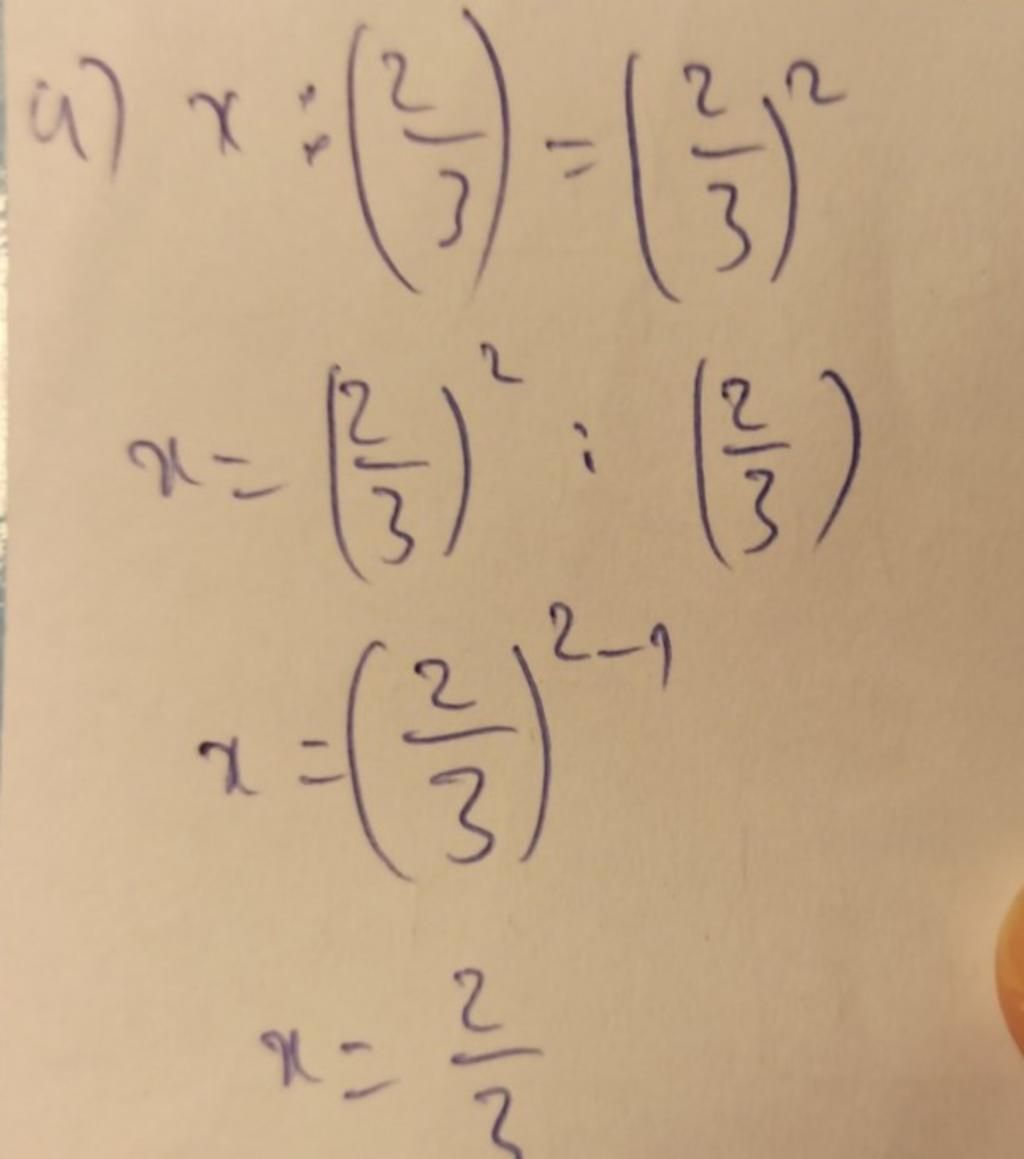 a) x : (2/3) = (2/3)²
x = (2/3)² : (2/3)
x = (2/3)²⁻¹
x = 2/3